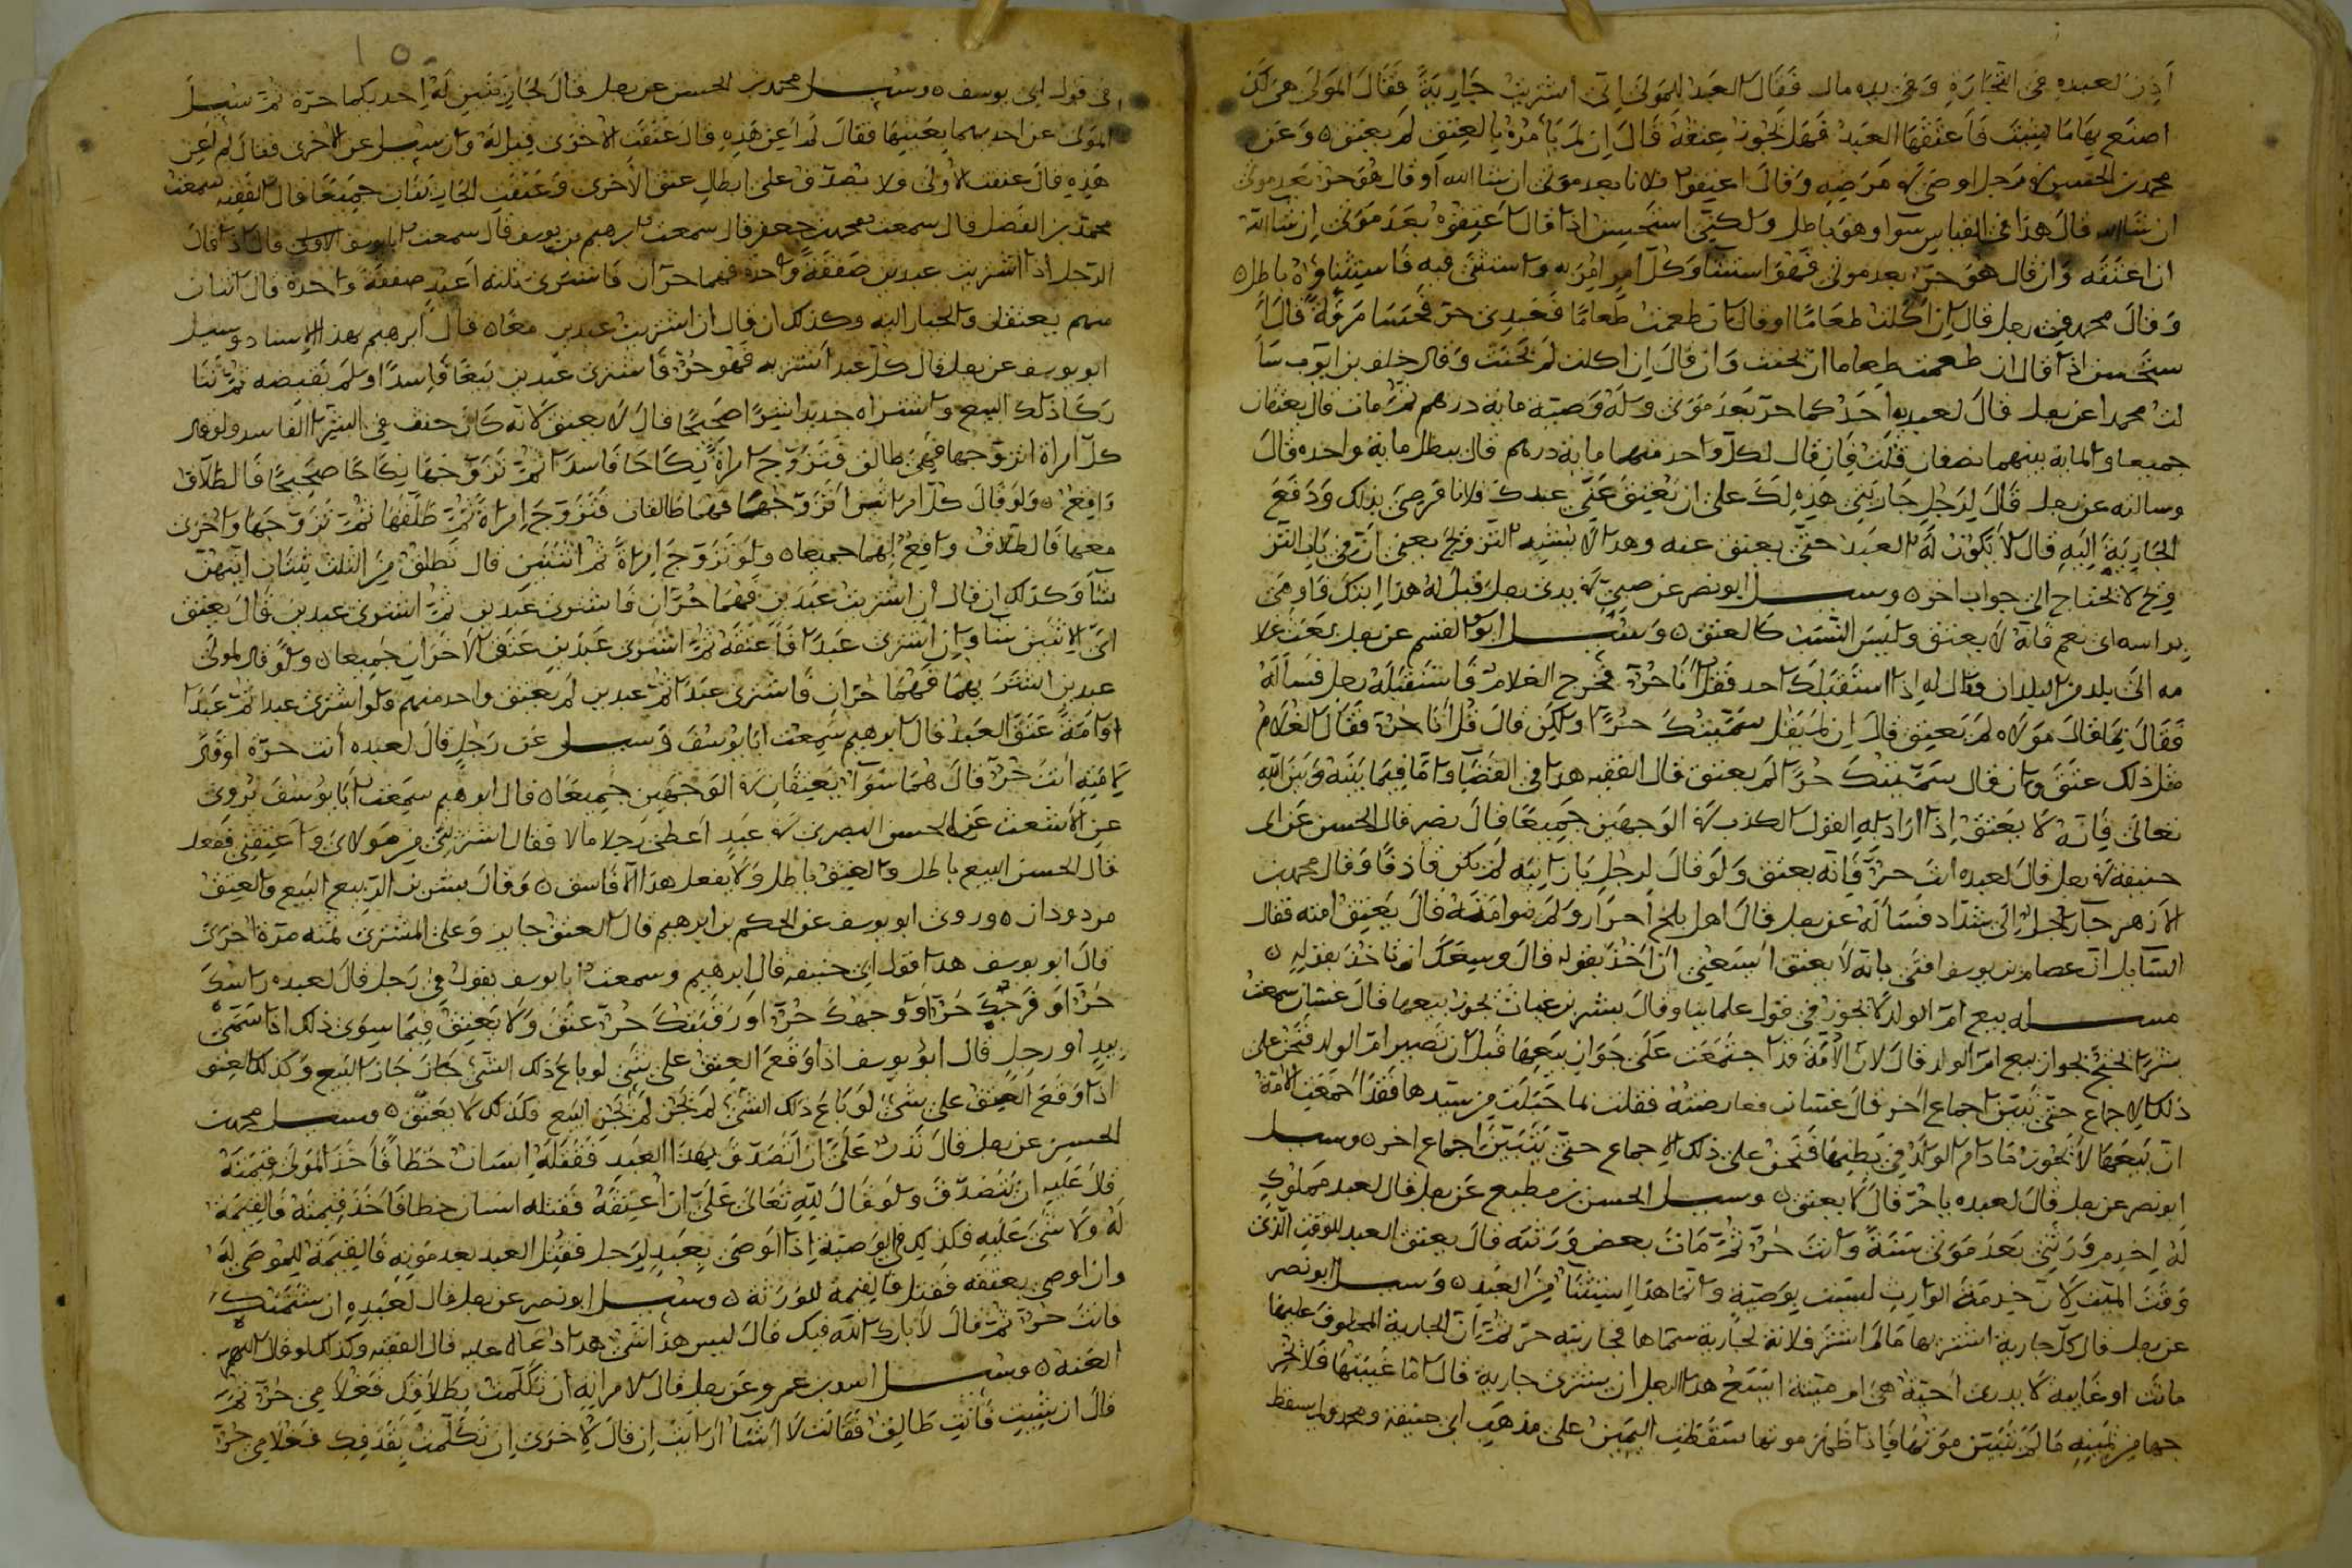 أذن لعبده في التجارة وفي يده مال فقال العبد للمولى اني اشتريت جارية فقال المولى هي لك
اصنع بها ما شيت فأعتقها العبد فهل يجوز عتقه قال ان لم يأمره بالعتق لم يعتق ٥ وعن
محمد بن الحسن في رجل اوصى في مرضه وقال اعتقوا فلانا بعد موتي ان شا الله أو قال هو حر بعد موتي
ان شا الله قال هذا في القياس سوا وهو باطل ولكني استحسن اذا قال اعتقوه بعد موتي ان شا الله
ان اعتقه وان قال هو حر بعد موتي فهو استثنا وكل أمر امر به واستثنى فيه فاستثناؤه باطل ٥
وقال محمد في رجل قال ان اكلت طعاما او قال ان طعمت طعاما فعبدي حر فحسا مرقة قال
ستحسن اذا قال ان طعمت طعاما ان يحنث وان قال ان اكلت لم يحنث وقال خلف بن ايوب سا
لت محمدا عن رجل قال لعبديه احدكما حر بعد موتي وله وصية ماية درهم ثم مات قال يعتقان
جميعا والماية بينهما نصفان قلت فان قال لكل واحد منهما ماية درهم قال يبطل ماية واحده قال
وسالته عن رجل قال لرجل جاريتي هذه لك على ان تعتق عني عبدك فلانا فرضي بذلك ودفع
الجارية اليه قال لا يكون له العبد حتى يعتق عنه وهذا لا يشبه التزويج يعني ان في باب التز
ويج لا يحتاج الى جواب اخر ٥ وسيل ابو نصر عن صبي في يدي رجل قيل له هذا ابنك فاومى
براسه اي نعم فانه لا يعتق وليس النسب كالعتق ٥ وسيل ابو القسم عن رجل بعث غلا
مه الى بلد من البلدان وقال له اذا استقبلك احد فقل انا حر فخرج الغلام فاستقبله رجل فسأله
فقال بما قال مولاه لم يعتق قال ان لم يقل سميتك حرا ولكن قال قل انا حر فقال الغلام
مثل ذلك عتق وان قال سميتك حرا لم يعتق قال الفقيه هذا في القضا واما فيما بينه وبين الله
تعالى فانه لا يعتق اذا اراد به القول الكذب في الوجهين جميعا قال نصر قال الحسن عن ابي
حنيفة في رجل قال لعبده انت حر فانه يعتق ولو قال لرجل يا بن انيه لم يكن قاذفا وقال محمد بن
الأزهر جا رجل الى شداد فسأله عن رجل قال اهل بلخ احرار ولم ينو امته قال يعتق امته فقال
السايل ان عصام بن يوسف افتى بانه لا يعتق ايسعني ان اخذ بقوله قال وسعك ان تاخذ بقوله ٥
مسله بيع ام الولد لا يجوز في قول علماينا وقال بشر بن غياث يجوز بيعها قال غسان سمعت
بشرا يحتج بجواز بيع ام الولد قال لان الأمة قد اجتمعت على جواز بيعها قبل ان تصير ام الولد فنحن على
ذلك الاجماع حتى يتبين اجماع اخر قال غسان فعارضته فقلت لما حبلت من سيدها فقد اجمعت الامة
ان بيعها لا يجوز ما دام الولد في بطنها فنحن على ذلك الاجماع حتى يتبين اجماع اخر ٥ وسيل
ابو نصر عن رجل قال لعبده يا حر قال لا يعتق ٥ وسيل الحسن بن مطيع عن رجل قال لعبد مملوك
له اخدم ورثتي بعد موتي سنة وانت حر ثم مات بعض ورثته قال يعتق العبد للوقت الذي
وقت الميت لان خدمة الوارث ليست بوصية وانما هذا استثنا من العبد ٥ وسيل ابو نصر
عن رجل قال كل جارية اشتريها ما لم اشتر فلانة لجارية سماها فجاريته حر ثم ان الجارية المحلوف عليها
ماتت او غايبة لا يدرى احية هي ام ميتة ايسع هذا الرجل ان يشتري جارية قال اما غيبتها فلا يخر
جها من يمينه ما لم يتبين موتها فاذا ظهر موتها سقطت اليمين على مذهب ابي حنيفة ومحمد ولا يسقط
في قول ابي يوسف ٥ وسيل محمد بن الحسن عن رجل قال لجاريتين له احديكما حرة ثم سيل
المولى عن احديهما بعينها فقال لم اعن هذه قال عتقت الاخرى قيل له وان سيل عن الاخرى فقال لم اعن
هذه قال عتقت الاولى ولا يصدق على ابطال عتق الاخرى وعتقت الجاريتان جميعا قال الفقيه سمعت
محمد بن الفضل قال سمعت محمد بن جعفر قال سمعت ابرهيم بن يوسف قال سمعت ابا يوسف الاولى قال اذا قال
الرجل اذا اشتريت عبدين صفقة واحدة فهما حران فاشترى ثلثة اعبد صفقة واحدة قال اثنان
منهم يعتقان والخيار اليه وكذلك ان قال ان اشتريت عبدين معا ٥ قال ابرهيم بهذا الاسناد وسيل
ابو يوسف عن رجل قال كل عبد اشتريه فهو حر فاشترى عبدين بيعا فاسدا ولم يقبضه ثم تتا
ركا ذلك البيع واشتراه جديدا شرا صحيحا قال لا يعتق لانه كان حنث في الشرا الفاسد ولو قال
كل امراة اتزوجها فهي طالق فتزوج امراة نكاحا فاسدا ثم تزوجها نكاحا صحيحا فالطلاق
واقع ٥ ولو قال كل امراتين اتزوجهما فهما طالقان فتزوج امراة ثم طلقها ثم تزوجها واخرى
معها فالطلاق واقع لهما جميعا ٥ ولو تزوج امراة ثم اثنتين قال تطلق من الثلث ثنتان ايتهن
شا وكذلك ان قال ان اشتريت عبدين فهما حران فاشترى عبدين ثم اشترى عبدين قال يعتق
اي الاثنين شا وان اشترى عبدا فاعتقه ثم اشترى عبدين عتق الاخران جميعا ٥ ولو قال لمولى
عبدين اشتر بهما فهما حران فاشترى عبدا ثم عبدين لم يعتق واحد منهم ولو اشترى عبدا ثم عبدا
او امة عتق العبد قال ابرهيم سمعت ابا يوسف وسيل عن رجل قال لعبده أنت حرة او قال
لامته انت حر قال هما سوا يعتقان في الوجهين جميعا ٥ قال ابرهيم سمعت ابا يوسف يروي
عن الاشعث عن الحسن البصري في عبد أعطى رجلا مالا فقال اشترني من مولاي واعتقني ففعل
قال الحسن البيع باطل والعتق باطل ولا يفعل هذا الا فاسق ٥ وقال بشر بن الربيع البيع والعتق
مردودان ٥ وروى ابو يوسف عن الحكم بن ابرهيم قال العتق جايز وعلى المشتري ثمنه مرة اخرى
قال ابو يوسف هذا قول ابي حنيفه قال ابرهيم وسمعت ابا يوسف يقول في رجل قال لعبده راسك
حر او فرجك حر او وجهك حر او رقبتك حر عتق ولا يعتق فيما سوى ذلك اذا سمى
بيد او رجل قال ابو يوسف اذا وقع العتق على شي لو باع ذلك الشي جاز جاز البيع وكذلك العتق
اذا وقع العتق على شي لو باع ذلك الشي لم يجز لم يجز البيع فكذلك لا يعتق ٥ وسيل محمد بن
الحسن عن رجل قال نذر علي ان اتصدق بهذا العبد فقتله انسان خطا فاخذ المولى قيمته
فلا عليه ان يتصدق ولو قال لله تعالى علي ان اعتقه فقتله انسان خطا فاخذ قيمته فالقيمة
له ولا شي عليه فكذلك في الوصية اذا اوصى بعبد لرجل فقتل العبد بعد موته فالقيمة للموصى له
وان اوصى بعتقه فقتل فالقيمة للورثة ٥ وسيل ابو نصر عن رجل قال لعبده ان شتمتك
فانت حر ثم قال لا بارك الله فيك قال ليس هذا شي هذا دعا عليه قال الفقيه وكذلك لو قال اللهم
العنه ٥ وسيل اسد بن عمرو عن رجل قال لامراته ان تكلمت بطلاقك فغلامي حر ثم
قال ان شيت فانت طالق فقالت لا اشا ارايت ان قال لاخرى ان تكلمت بقذفك فغلامي حر